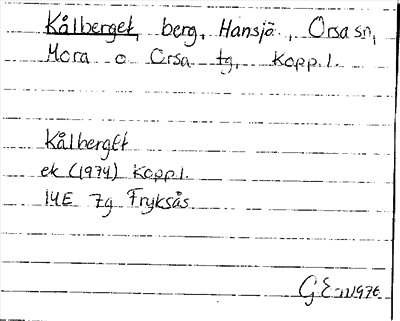 Kålberget, berg, Hansjö, Orsa sn,
Mora o Orsa tg, Kopp. l.
Kålberget
ek (1974) Kopp l.
14E 7g Fryksås.
GE 1976